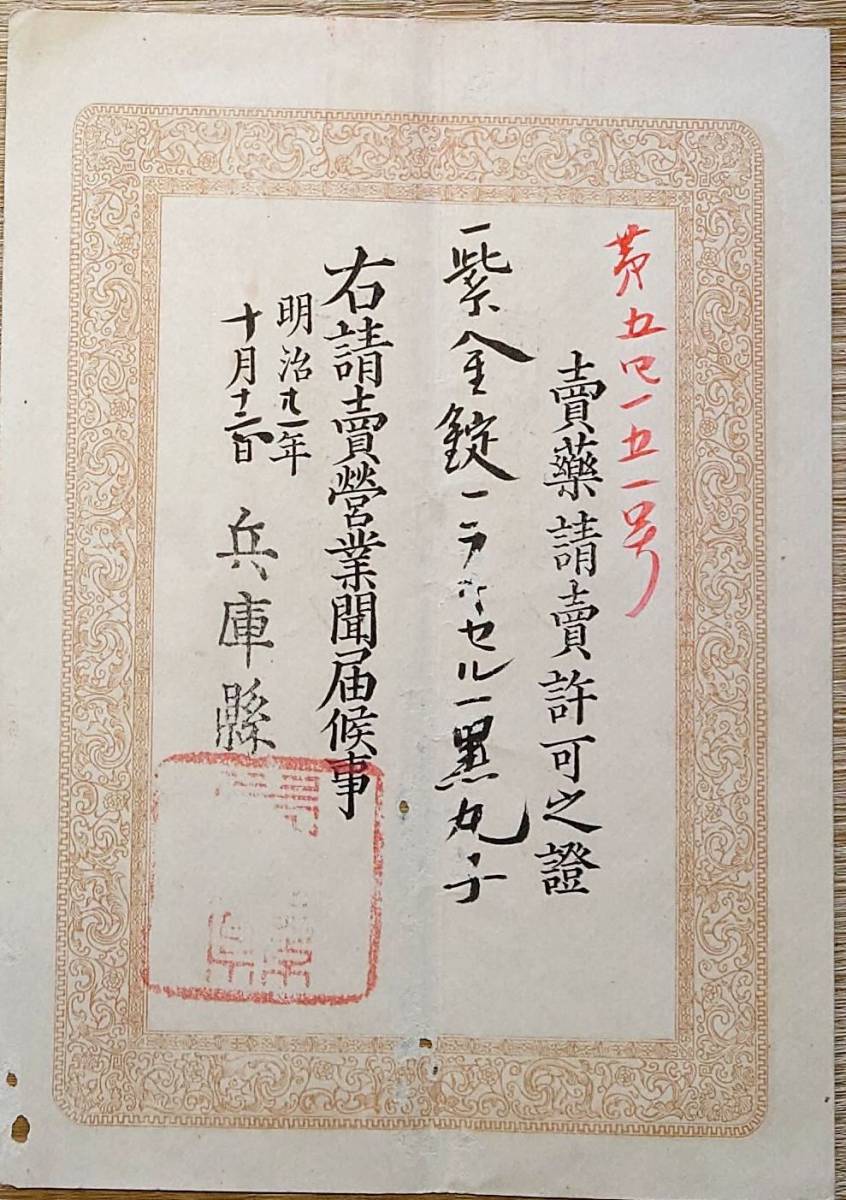 第五〇一五一号
賣藥請賣許可之證
一紫金錠一 セル一黒丸子
右請賣營業聞届候事
明治 年
十月十二日
兵庫縣